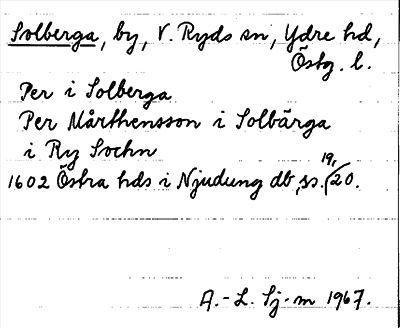 Solberga, by, V. Ryds sn, Ydre hd,
Östg. l.
Per i Solberga
Per Mårthensson i Solbärga
i Ry Sochn
1602 Östra hds i Njudung db, ss. 19, 20.
A.-L. Sj-m 1967.